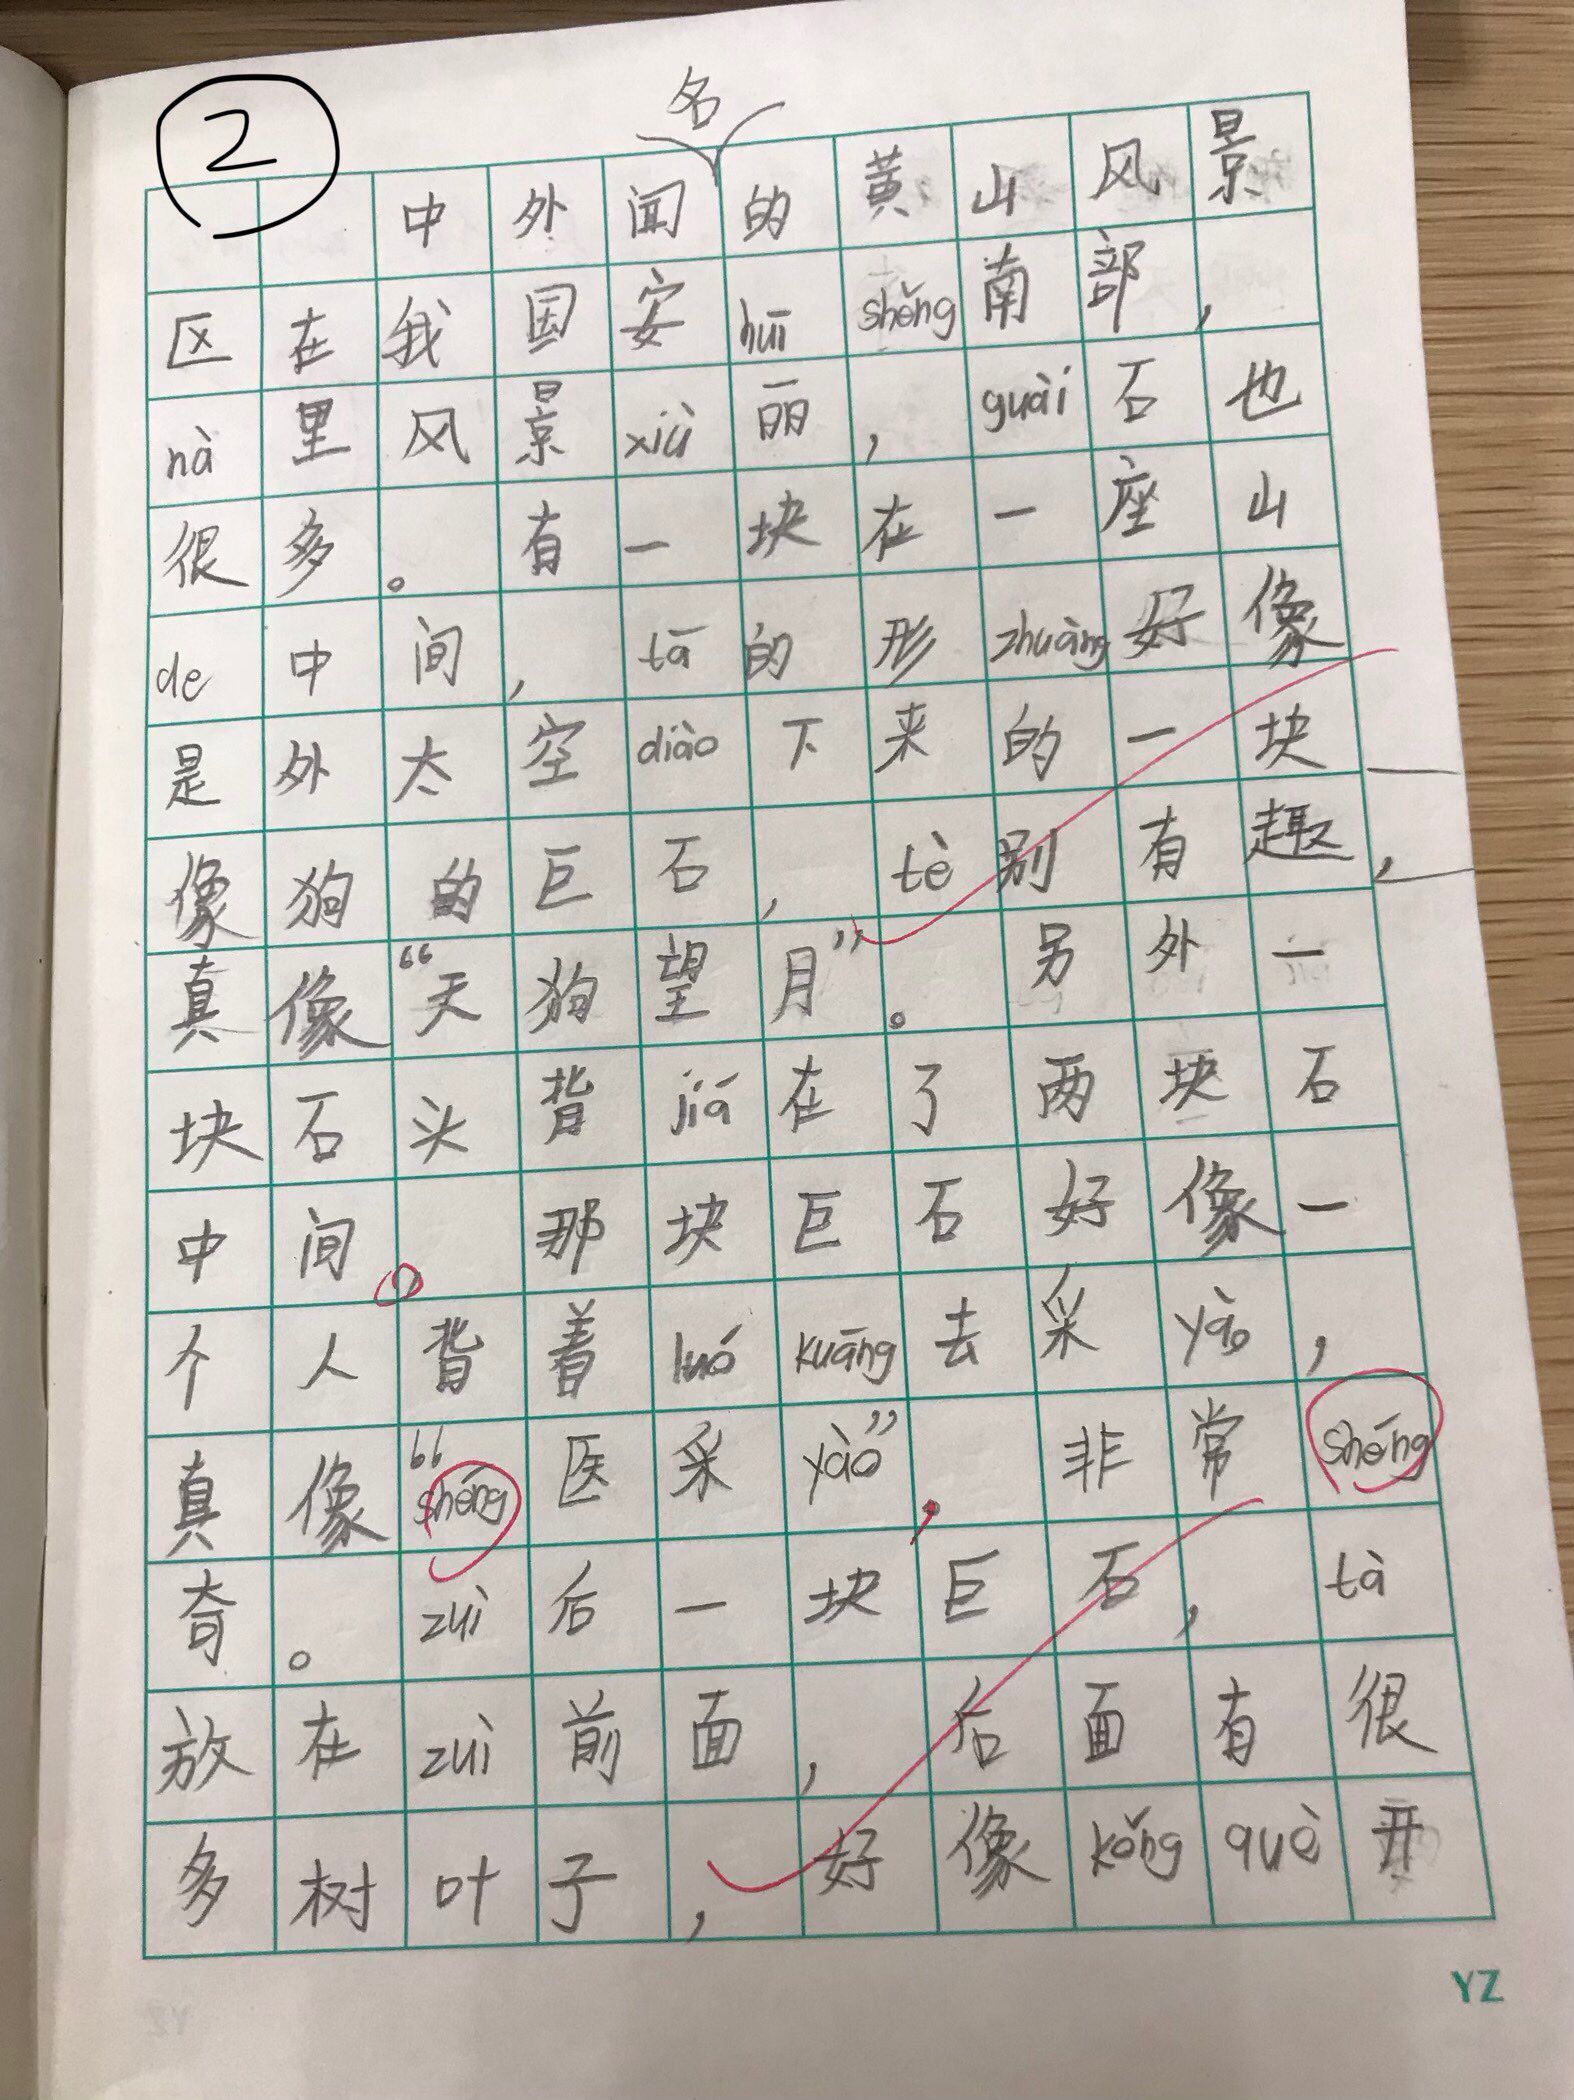 2
名
中外闻的黄山风景
区在我国安huī shěng南部，
nà里风景xiù丽，guài石也
很多。有一块在一座山
de中间，tā的形zhuàng好像
是外太空diào下来的一块
像狗的巨石，tè别有趣，
真像“天狗望月”。另外一
块石头背jiá在了两块石
中间。那块巨石好像一
个人背着luó kuāng去采yào，
真像“shéng医采yào”，非常shéng
奇。zuì后一块巨石，tà
放在zuì前面，后面有很
多树叶子，好像kǒng què开
YZ